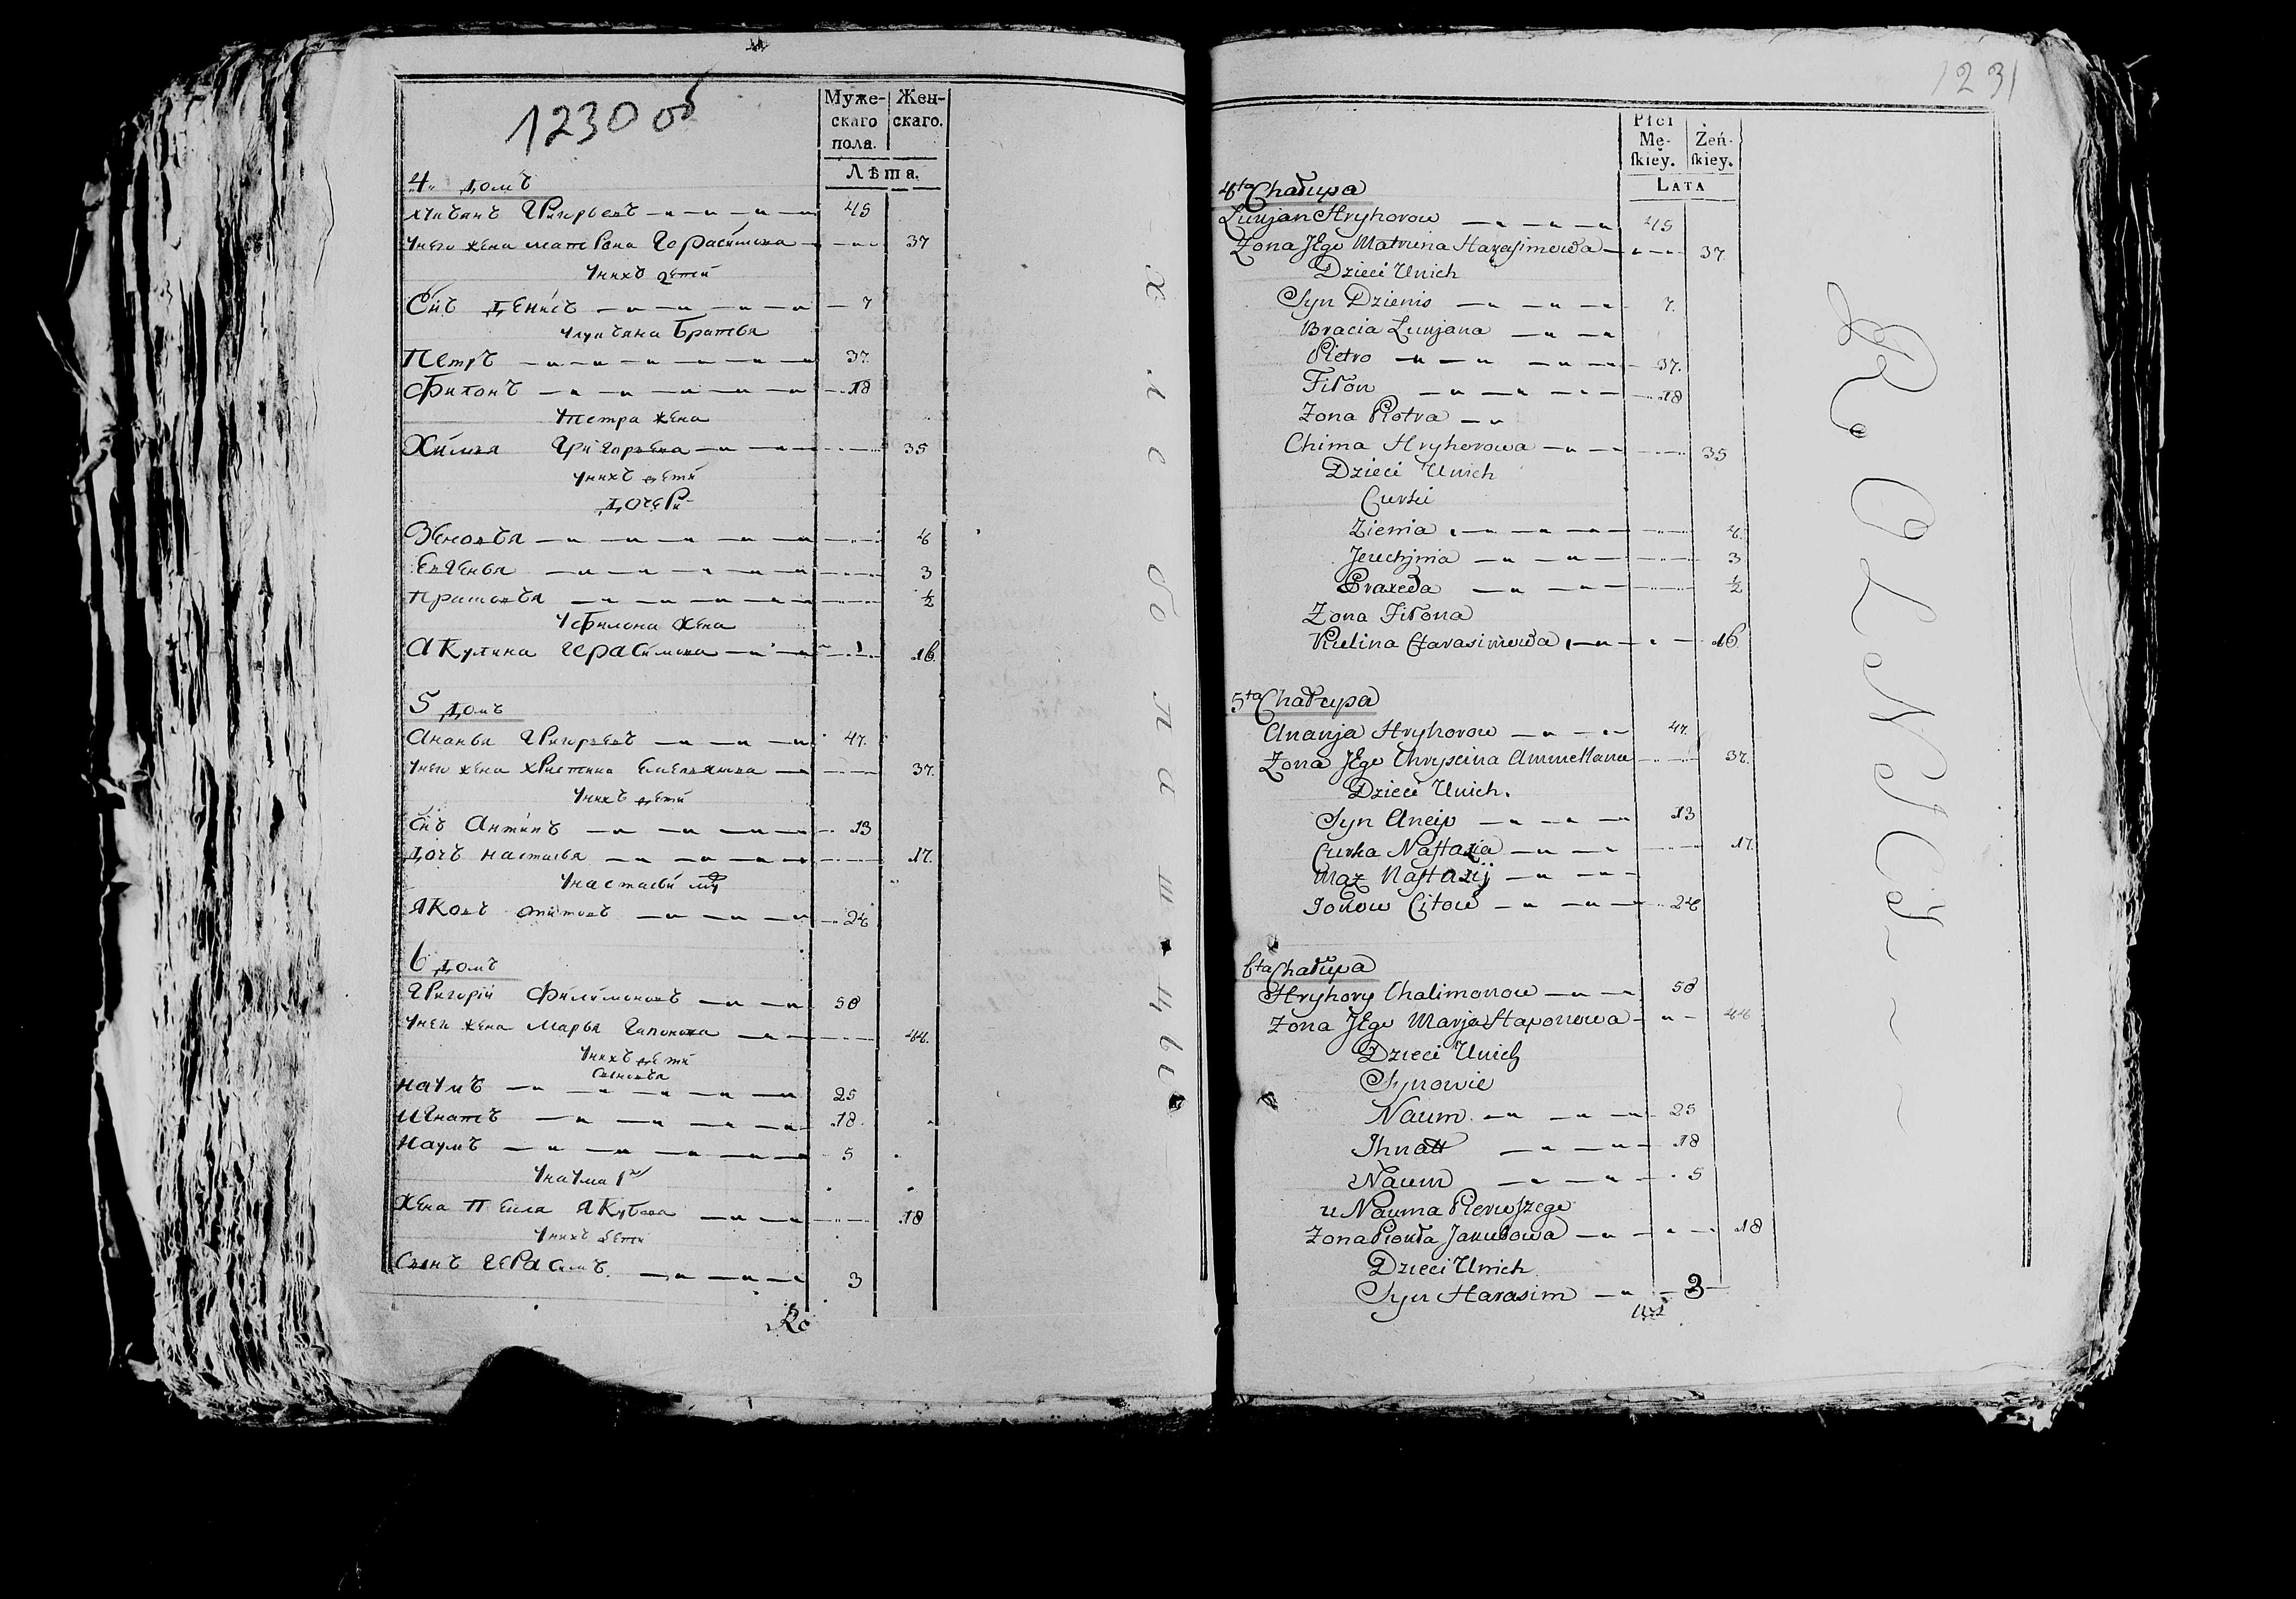 1230 об
Муже-
скаго
пола.
Жен-
скаго.
Лѣта.
4 домъ
Григорьевъ 45
У него жена Матрона Горасимова 37
У нихъ дети
Сынъ Денисъ 7
Братья
Петръ 37.
Филонъ 18
У Петра жена
Химья Григорьева 35
У нихъ дети
дочери
4
Евгенья 3
½
У Филона жена
Акулина Герасимова 16.
5 домъ
Ананья Григорьевъ 47.
У него жена Христина Емельянова 37.
У нихъ дети
Сынъ Антипъ 13
Дочь Настасья 17.
У Настасьи мужъ
Яковъ Титовъ 24
6 домъ
Григорій Филимоновъ 58
У него жена Марья Гапонова 44.
У нихъ дети
Сыновья
Наумъ 25
Игнатъ 18
Наумъ 5
У Наума 1го
Жена Якубова 18
У нихъ дети
Сынъ Герасимъ. 3
хлебопашцы
1231
Płci
Mę-
ſkiéy.
Żeń-
ſkiéy.
LATA
4ta Chałupa
Łukjan Hryhorow 45
Zona JEgo Matruna Harasimowa 37.
Dzieci Unich
Syn Dzienis 7.
Bracia Łukjana
Pietro 37.
Fiłon 18
Zona Piotra
Chima Hryhorowa 35
Dzieci Unich
Curki
Zienia 4.
Jeuchjnia 3
Praxeda ½
Zona Fiłona
Kulina Harasimowa 16.
5ta Chałupa
Ananja Hryhorow 47.
Zona JEgo Chryscina 37.
Dzieci Unich.
Syn Ancip 13
Curka Nastazia 17.
Maz Nastazij
Jokow Citow 24
6ta Chałupa
Hryhory Chalimonow 58
Zona JEgo Marja Haponowa 44
Dzieci Unich
Synowie
Naum 25
Ihnatt 18
Naum 5
u Nauma Pierwszego
Zona Piokła Jakubowa 18
Dzieci Unich
Syn Harasim 3
ROLNICY